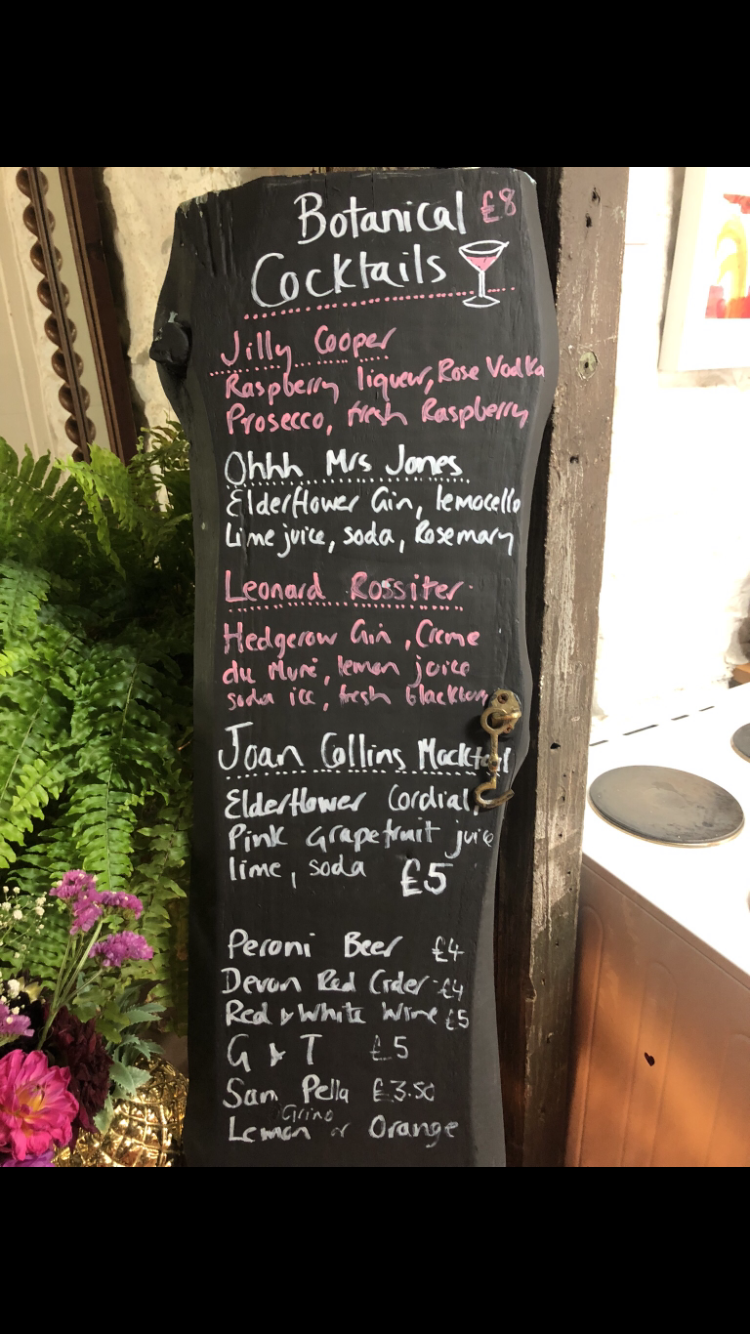 Botanical £8
Cocktails
Jilly Cooper
Raspberry liqueur, Rose Vodka
Prosecco, fresh Raspberry
Ohhh Mrs Jones
Elderflower Gin, lemocello
Lime juice, soda, Rosemary
Leonard Rossiter
Hedgerow Gin, Creme
du Mure, lemon juice
soda ice, fresh blackberry
Joan Collins Mocktail
Elderflower Cordial,
Pink Grapefruit juice
lime, soda £5
Peroni Beer £4
Devon Red Cider £4
Red & White Wine £5
G & T £5
San Pella £3.50
Grino
Lemon or Orange